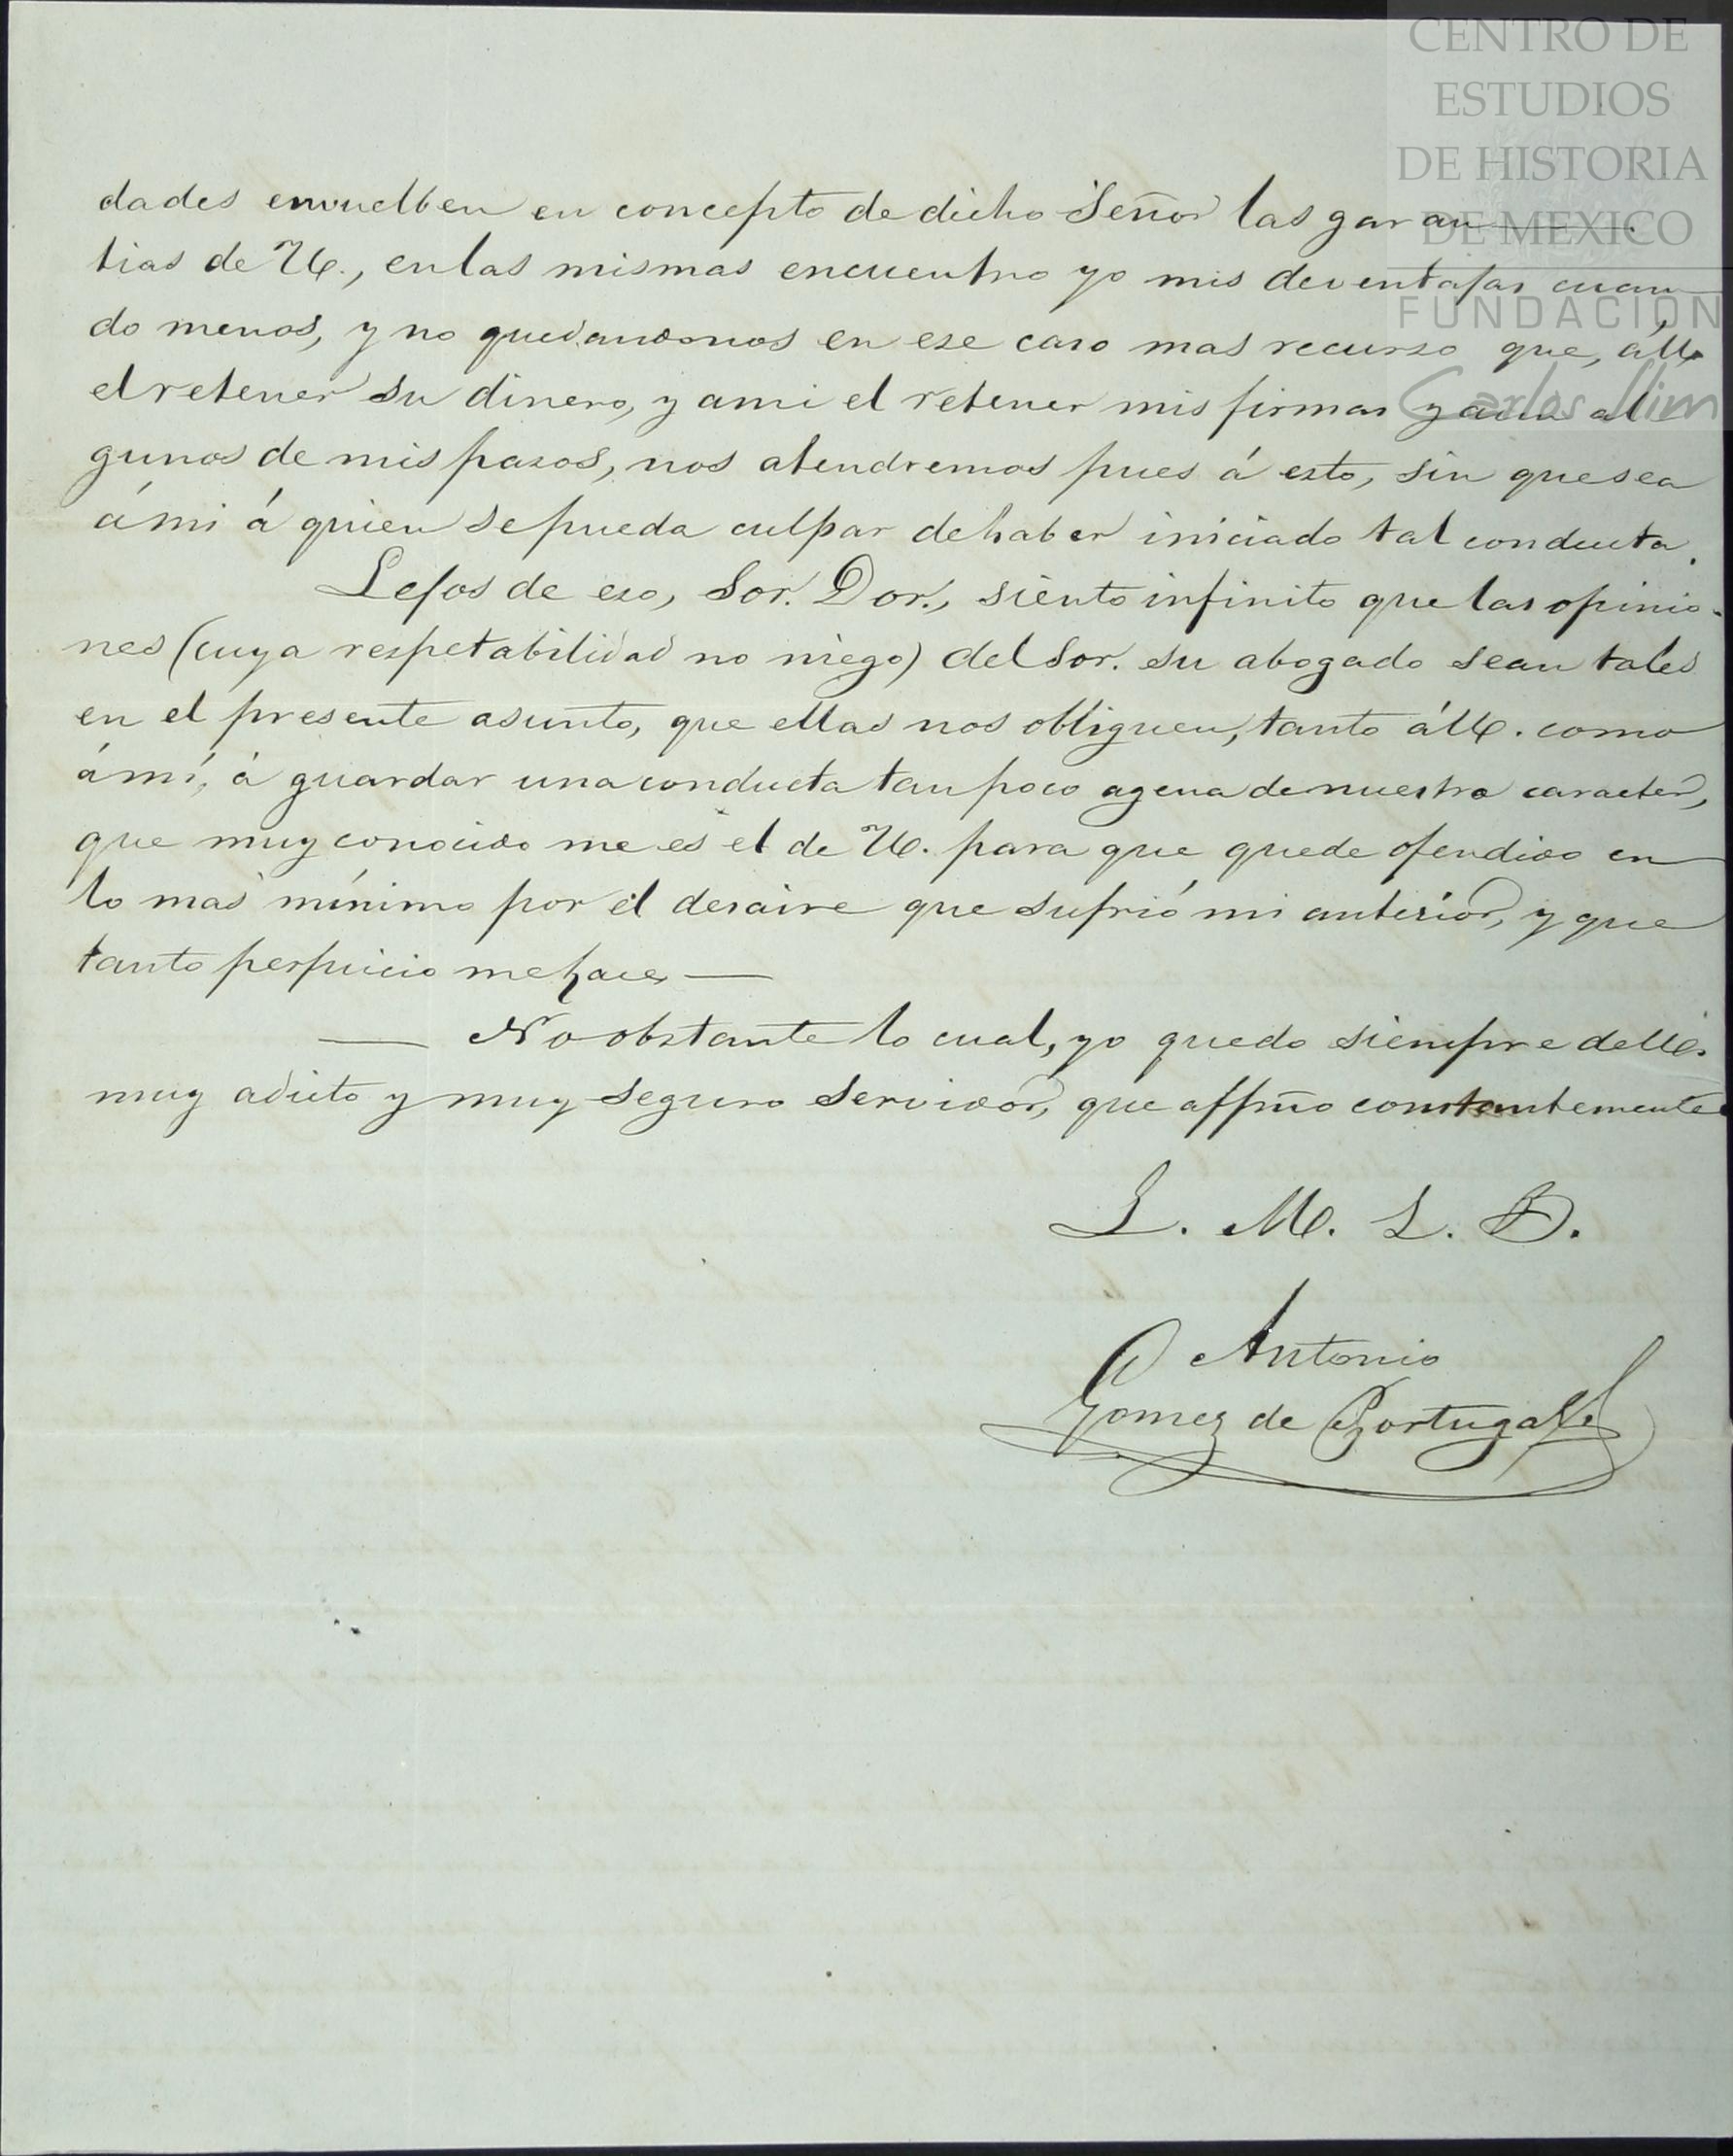 CENTRO DE
ESTUDIOS
DE HISTORIA
DE MEXICO
FUNDACIÓN
Carlos Slim
dades envuelben en concepto de dicho Señor las garan
tias de U., en las mismas encuentro yo mis deventajas cuan
do menos, y no quedandonos en ese caso mas recurso que, á U.
el retener su dinero, y a mi el retener mis firmas y aun al
gunos de mis pasos, nos atendremos pues á esto, sin que sea
á mi á quien se pueda culpar de haber iniciado tal conducta.
Lejos de eso, Sor. Dor., siento infinito que las opinio-
nes (cuya respetabilidad no niego) del Sor. su abogado sean tales
en el presente asunto, que ellas nos obliguen, tanto á U. como
á mí, á guardar una conducta tan poco agena de nuestro caracter,
que muy conocido me es el de U. para que quede ofendido en
lo mas mínimo por el desaire que sufrió mi anterior, y que
tanto perjuicio me hace —
— No obstante lo cual, yo quedo siempre de U.
muy adicto y muy seguro servidor, que affmo constantemente
S. M. S. B.
Antonio
Gomez de Portugal